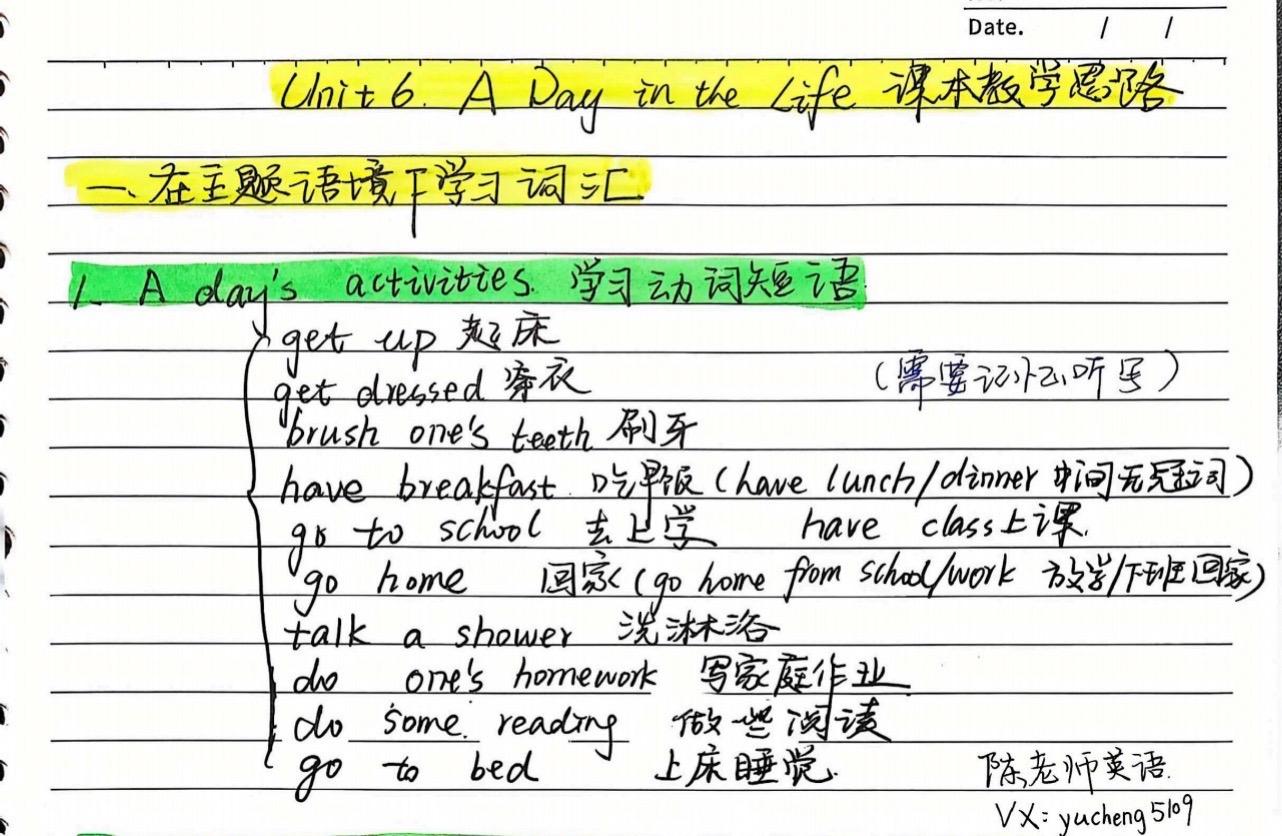 Date. / /
Unit 6. A Day in the Life 课本教学思路
一、在主题语境下学习词汇
1. A day's activities. 学习动词短语
get up 起床
get dressed 穿衣 (需要记忆听写)
brush one's teeth 刷牙
have breakfast 吃早饭 (have lunch/dinner 中间无冠词)
go to school 去上学 have class 上课.
go home 回家 (go home from school/work 放学/下班回家)
talk a shower 洗淋浴
do one's homework 写家庭作业
do some reading 做些阅读
go to bed 上床睡觉.
陈老师英语
VX: yucheng5109